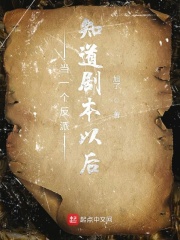 当一个反派
知道剧本以后
著
起点中文网